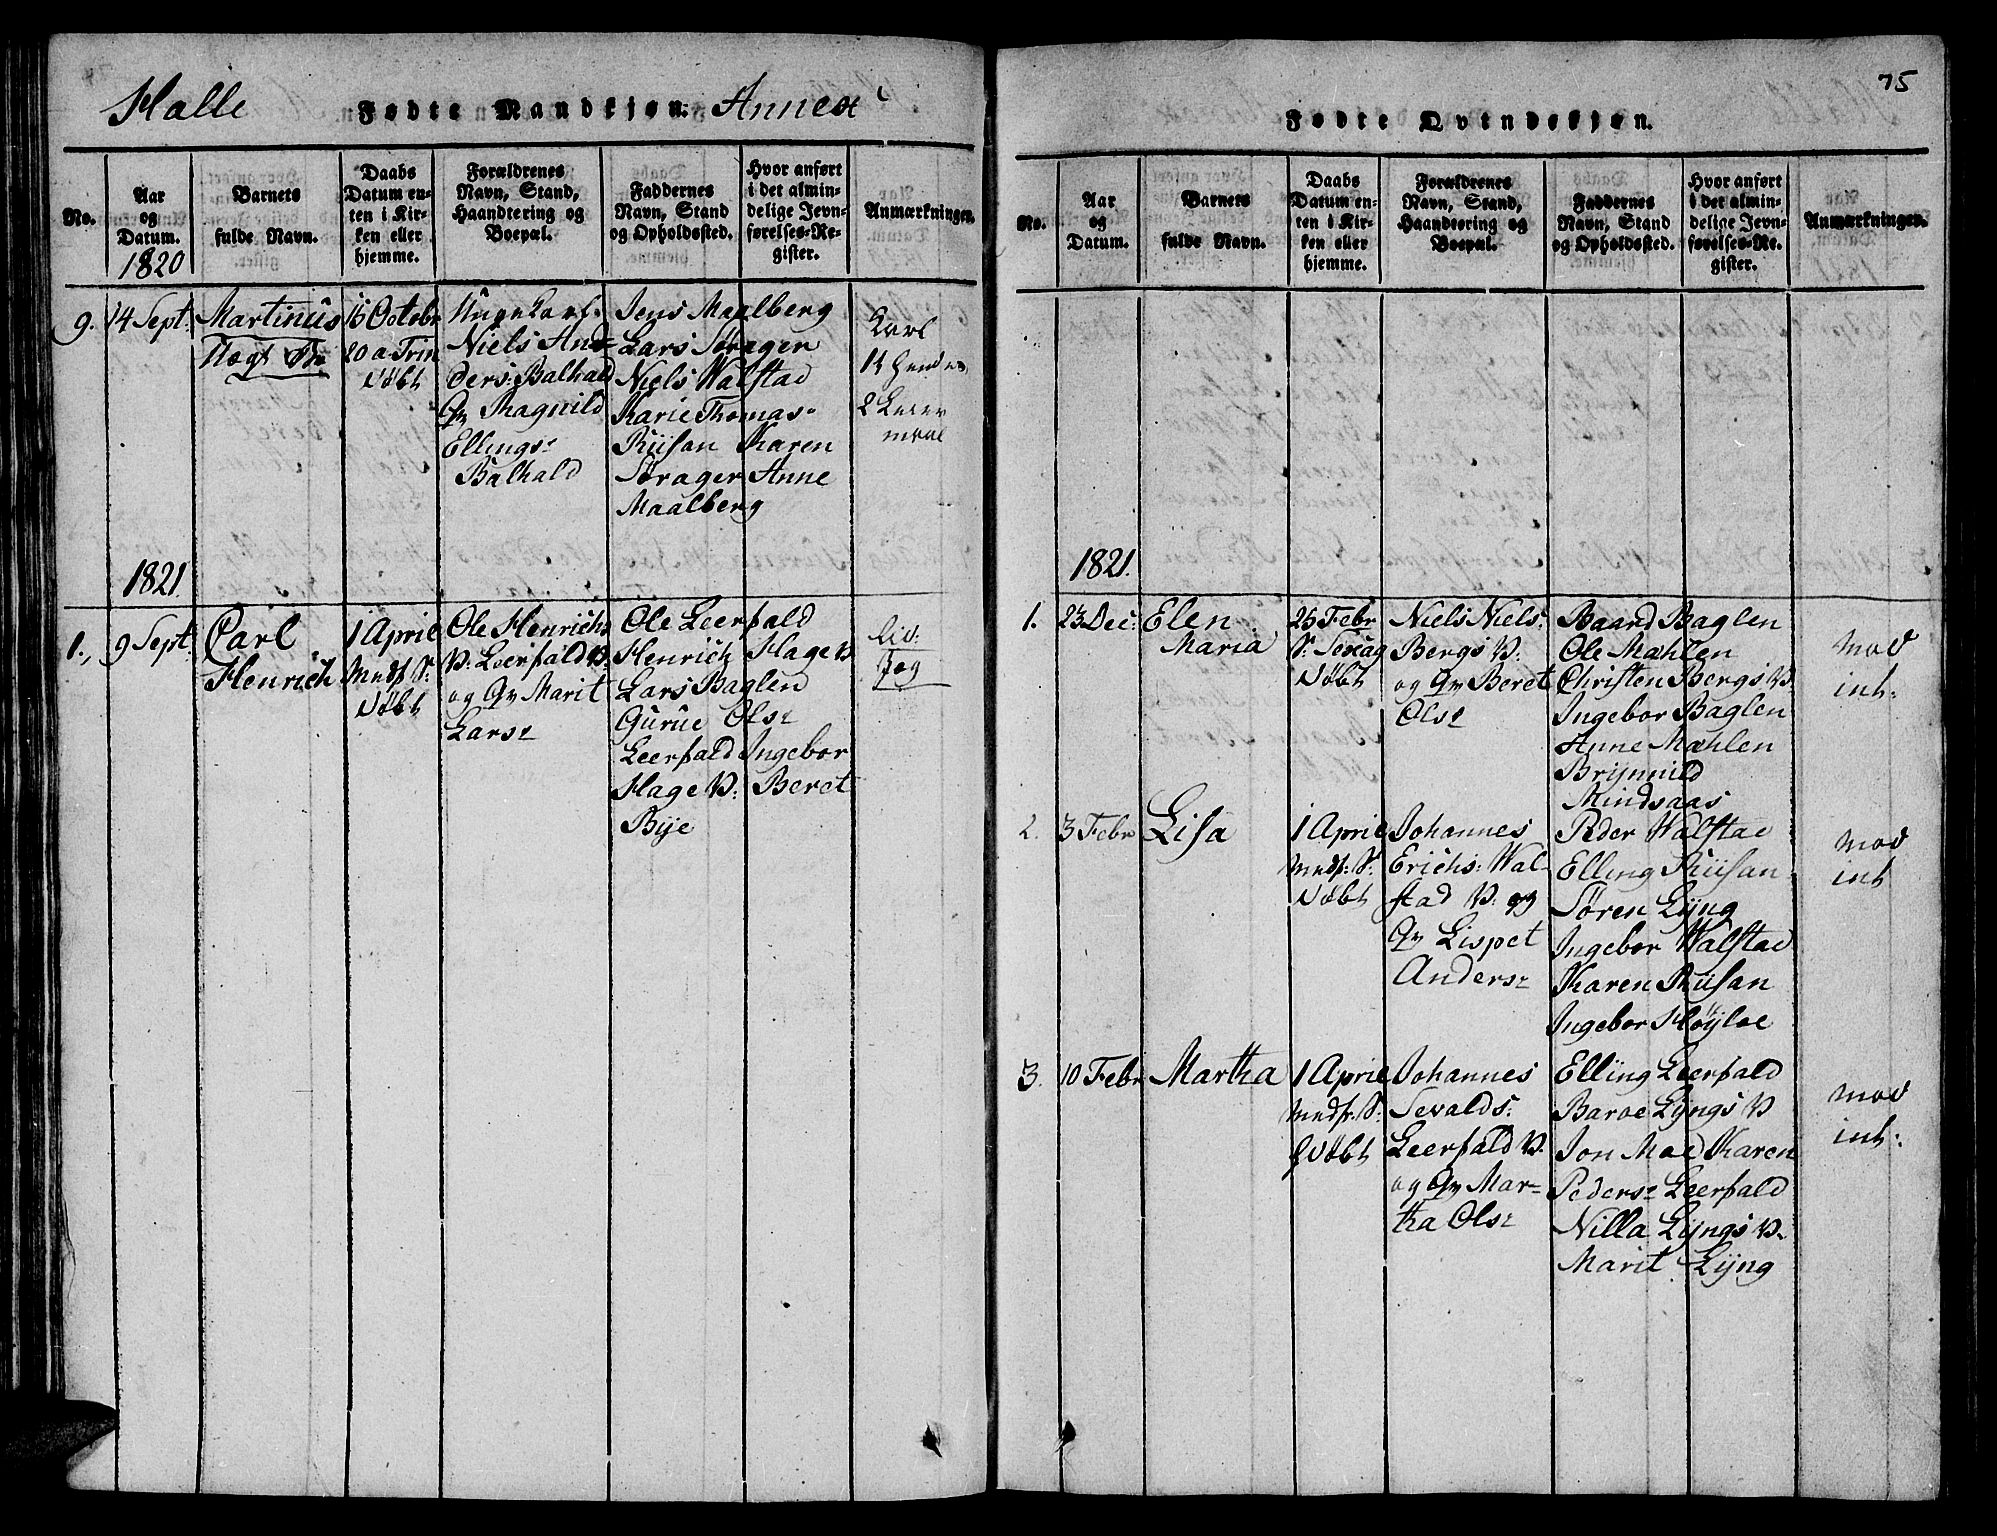 Halle Fødte Mandkjøn. Annex
No.
Aar og Datum.
Barnets fulde Navn.
Daabs Datum enten i Kirken eller hjemme.
Forældrenes Navn, Stand, Haandtering og Boepæl.
Faddernes Navn, Stand og Opholdssted.
Hvor anført i det almindelige Jevnførelses-Register.
Anmærkninger.
1820
9. 14 Sept:
Martinus
16 Octobr
20 a Trin
døbt
Ungekarl
Niels And-
ders: Balhald
Qv Ragnild
Ellings
Balhald
Jens Maalberg
Lars Sørager
Niels Walstad
Karie Thomas-
Riisan Karen
Sørager Anne
Maalberg
1821
1., 9 Sept:
Carl
Henrich
1 April
døbt
Ole Henrichs
P: Leerfald P:
og Qv Marit
Lars
Ole Leerfald
Henrich Hage P
Lars Baglen
Gurue Ols
Leerfald Ingebor
Hage P: Beret
Bye
75
Fødte Qvindekjøn.
No.
Aar og Datum.
Barnets fulde Navn.
Daabs Datum enten i Kirken eller hjemme.
Forældrenes Navn, Stand, Haandtering og Boepæl.
Faddernes Navn, Stand og Opholdssted.
Hvor anført i det almindelige Jevnførelses-Register.
Anmærkninger.
1821.
1. 23 Dec:
Elen
Maria
25 Febr
døbt
Niels Niels:
Bergs P:
og Qv Beret
Ols
Baard Baglen
Ole Mahlen
Christen Bergs P
Ingebor Baglen
Anne Mahlen
Brynnild
Mindsaas
2. 3 Febr
Lisa
1 April
døbt
Johannes
Erichs: Wal-
stad P: og
Qv Lispet
Anders
Peder Walstad
Elling Riisan
Søren Lyng
Ingebor Walstad
Karen Riisan
Ingebor Høyloe
3. 10 Febr
Martha
1 April
døbt
Johannes
Sevalds:
Leerfald P:
og Qv Mar-
tha Ols
Elling Leerfald
Baroe Lyngs P
Jon Moe Karen
Peders Leerfald
Nilla Lyngs P.
Marit Lyng